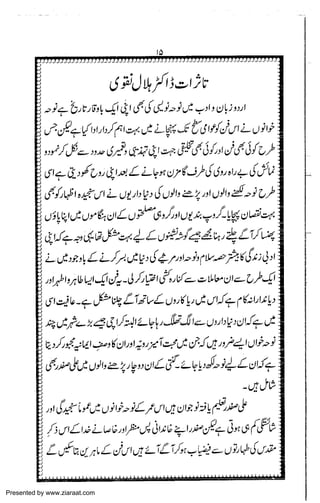 ۱۵
تاثرات ڈاکٹر ہلال نقوی
اردو زبان و ادب میں نوحہ نویسی کی بھی ایک اپنی باوقار تاریخ ہے نوحہ
خوانوں نے اس فن کو عوامی سطح تک پہنچانے میں بہت اہم کردار ادا کیا ہے لیکن جس
طرح کوئی بھی فن اور کوئی بھی تخلیقی جہت اپنی تہذیبی و تعمیری حدود سے نکل کر نمود و
نمائش کی بے راہ روی کی طرف گامزن ہو جانے کے بعد اپنا روپ کھو دیتی ہے اسی
طرح نوحہ لکھنے والوں اور پڑھنے والوں کی دنیا داریوں نے اس سنجیدہ اظہار کو بھی
بہت نقصان پہنچایا۔ گروپ بندیوں اور گروہی مصلحتوں کے ان ہنگاموں میں اپنا پاؤں
پھنسا کر آگے چلتے رہنا مجھ جیسے گوشہ نشینوں کے لیے بہت مشکل تھا یہی وجہ ہے کہ اپنی
ادبی زندگی کا بیشتر حصہ سلام و نوحہ اور مرثیے کی دنیا میں بسر کرنے کے باوجود میں نے
ایک طرح سے ان معاملات سے کنارہ کشی اختیار کر لی۔ یہ فن ایک ایسا طاہر و اطہر اور
دیانتدارانہ کام ہے کہ اس میں ریا کاروں کے ساتھ آگے چلنا مشکل ہے۔ عافیت اسی
میں ہے کہ ان دنیا داروں سے الگ تھلگ رہا جائے البتہ کراچی جیسے بڑے شہر میں چند
نوحہ خواں ایسے ضرور ہیں کہ جن میں محبت آمیز رویہ اور ان کا وصف ایمانیہ مجبور کر دیتا
ہے کہ ان کے لیے نوحہ لکھ دیا جائے۔ گنتی کے ان دو چار پڑھنے والوں میں علی صفدر بھی
شامل ہیں۔
علی صفدر تعلیم یافتہ نوجوان ہیں اس عمر کے نوحہ خوانوں میں عموماً سنجیدگی اور
شائستگی کم ہی ہوتی ہے لیکن صفدر اپنے خاندانی پس منظر اور خاصانِ خدا کے اس ذکرِ
مقدس کی طہارتوں سے فیضیاب ہو کر آگے آئے ہیں اس فن کے ماہرین نے بتائیں گے
Presented by www.ziaraat.com